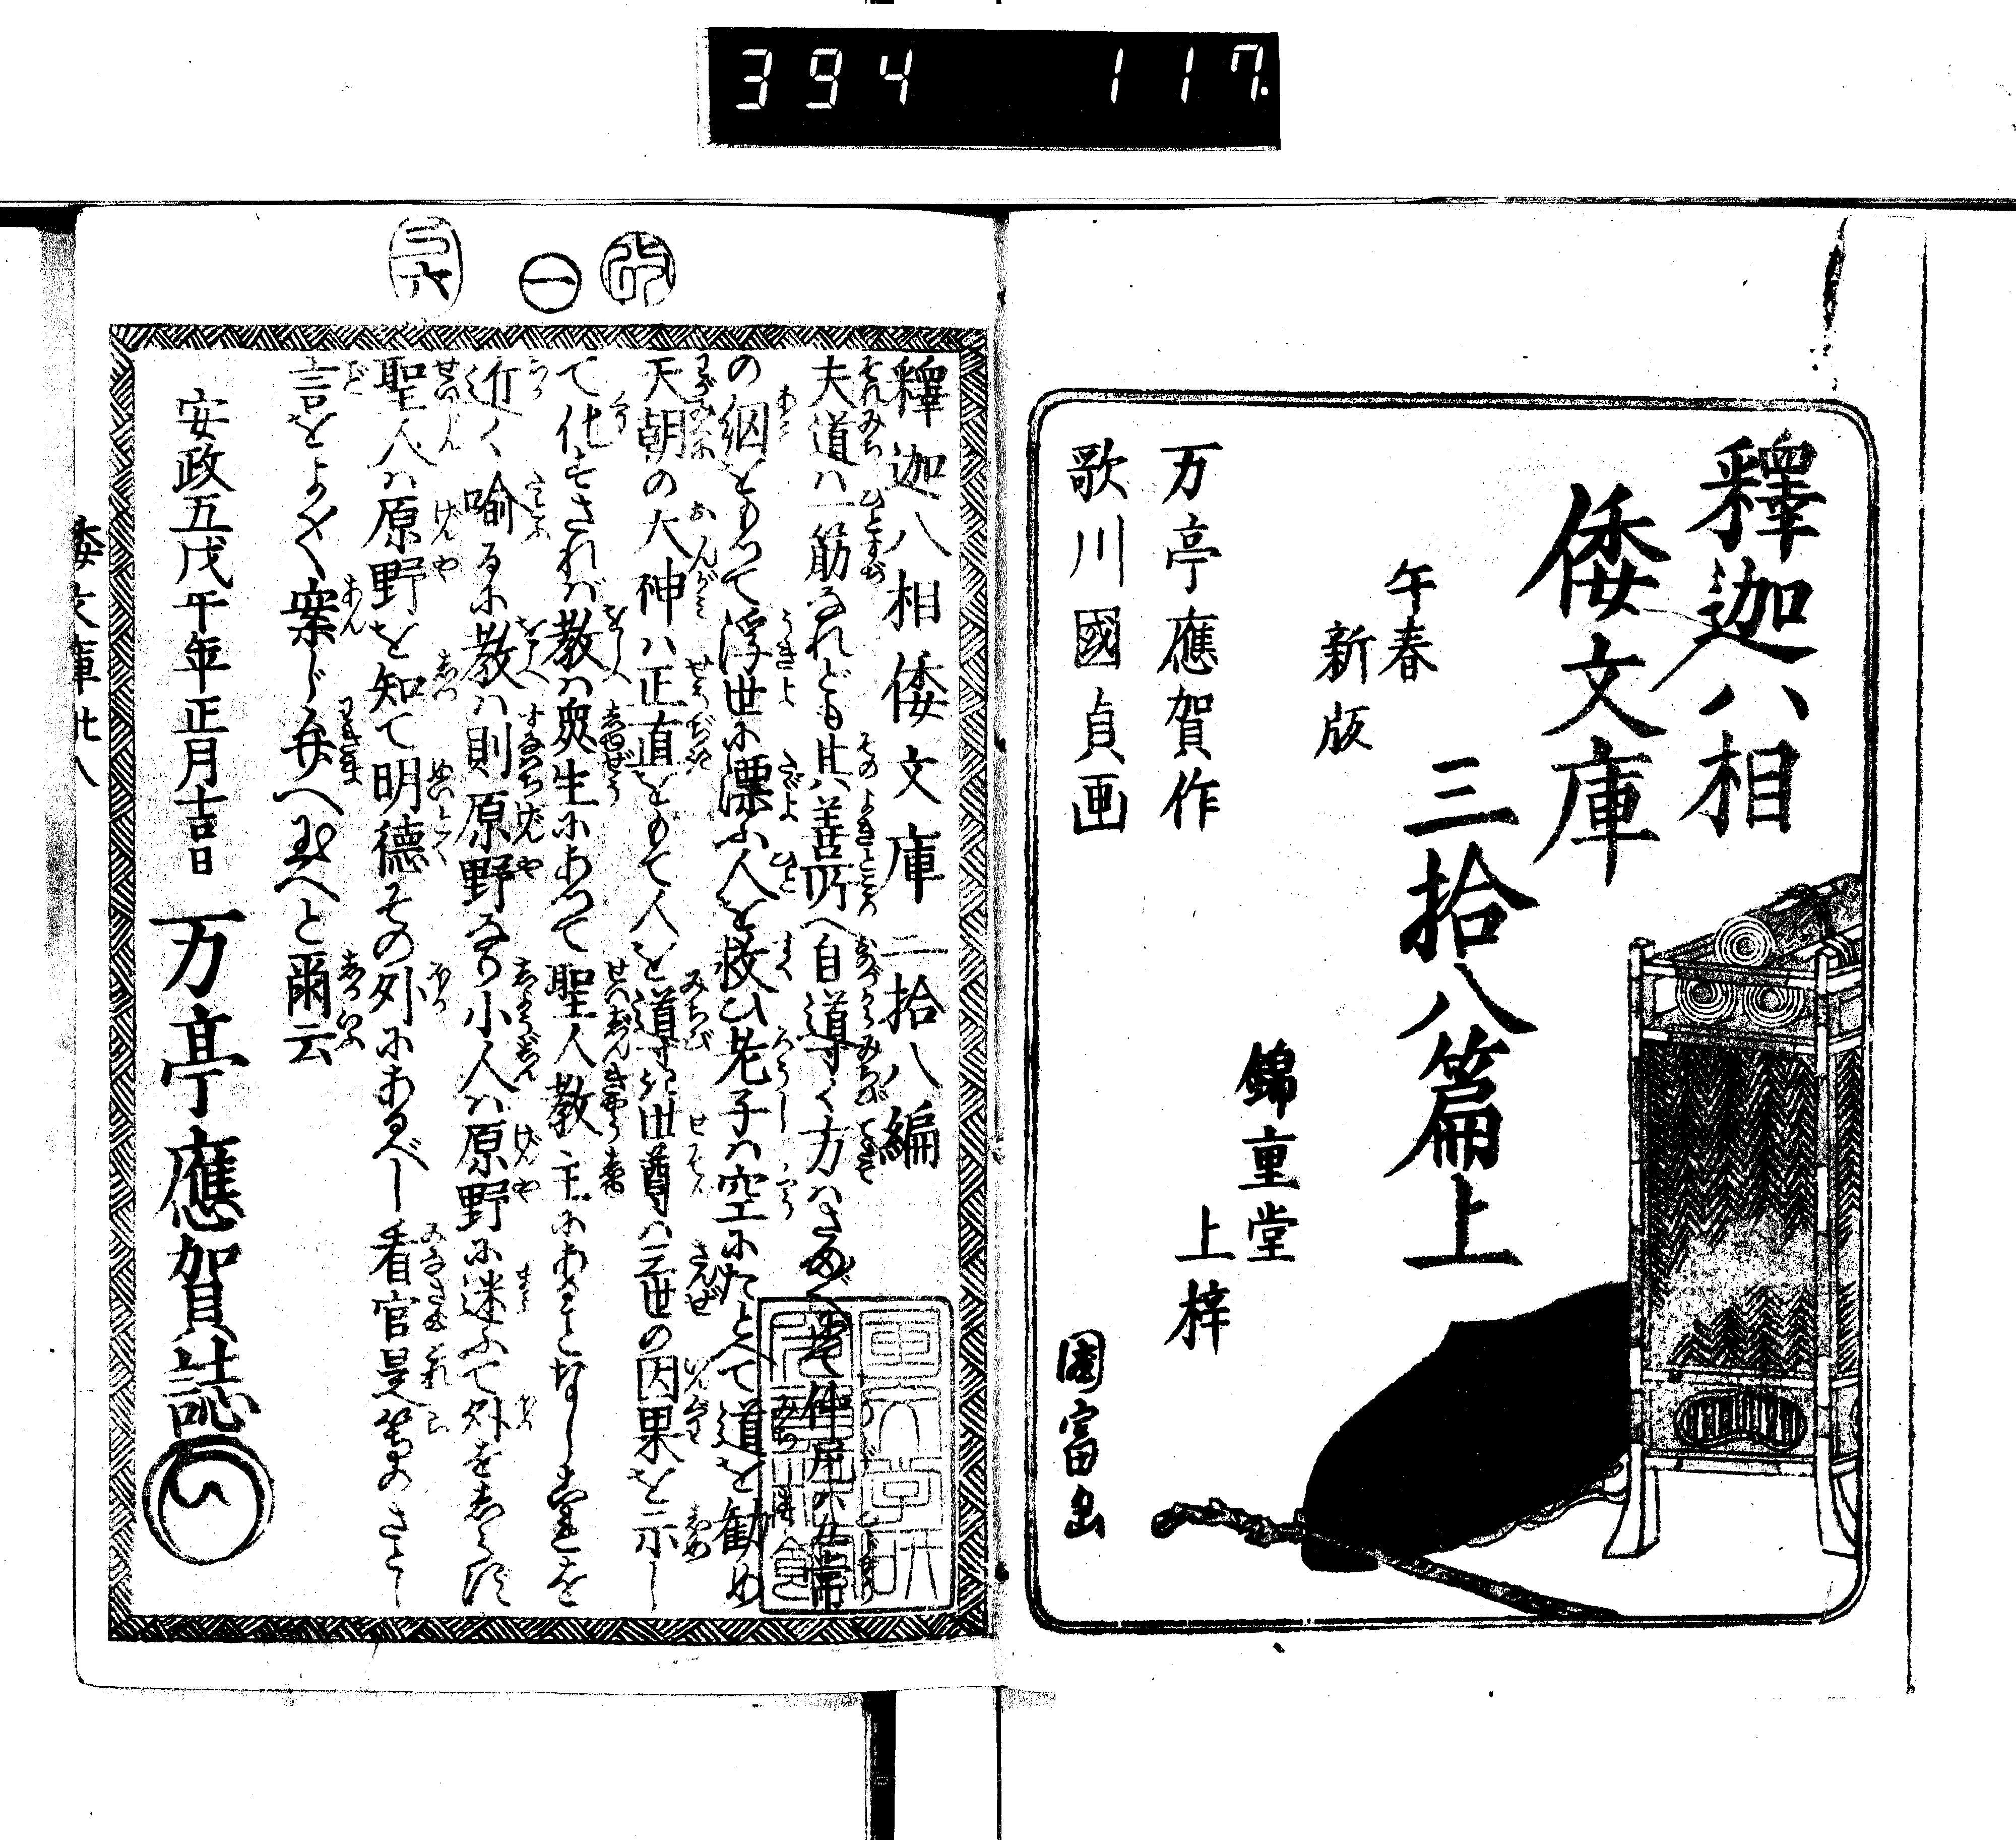 394 117
釋迦八相
倭文庫
三拾八篇上
午春
新版
錦重堂
上梓
万亭應賀作
歌川國貞画
國富出
一
釋迦八相倭文庫二拾八編
夫道ハ一筋なれども其善所へ自導く方ハさま
の網をもつて浮世に漂ふ人を救ひ老子ハ空にたとへて道を勧め
天朝の大神ハ正直をもて人を道引世尊ハ三世の因果を示し
て化すされバ教ハ衆生にあつて聖人教主にあらずとなし
近く喩るに教ハ則原野なり小人ハ原野に迷ふて外をしらず
聖人ハ原野を知て明徳その外にあるべし看官是等のさとし
言をよく〳〵案じ弁へ玉へと爾云
安政五戊午年正月吉日
万亭應賀誌
倭文庫廿八